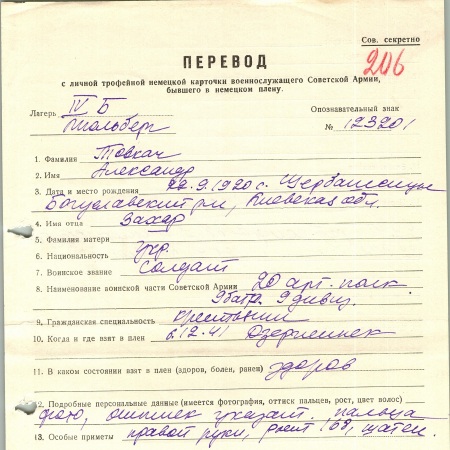 Сов. секретно
206
ПЕРЕВОД
с личной трофейной немецкой карточки военнослужащего Советской Армии,
бывшего в немецком плену.
Лагерь IV Б
Мюльберг
Опознавательный знак
№ 123201
1. Фамилия Товкач
2. Имя Александр
3. Дата и место рождения 22.9.1920 г.
Богуславский р-н, Киевская обл.
4. Имя отца Захар
5. Фамилия матери
6. Национальность укр.
7. Воинское звание Солдат
8. Наименование воинской части Советской Армии 20 арт. полк
9 дивиз.
9. Гражданская специальность крестьянин
10. Когда и где взят в плен 6.12.41
11. В каком состоянии взят в плен (здоров, болен, ранен) здоров
2. Подробные персональные данные (имеется фотография, оттиск пальцев, рост, цвет волос)
фото, оттиск указат. пальца
13. Особые приметы правой руки, рост 168, шатен.